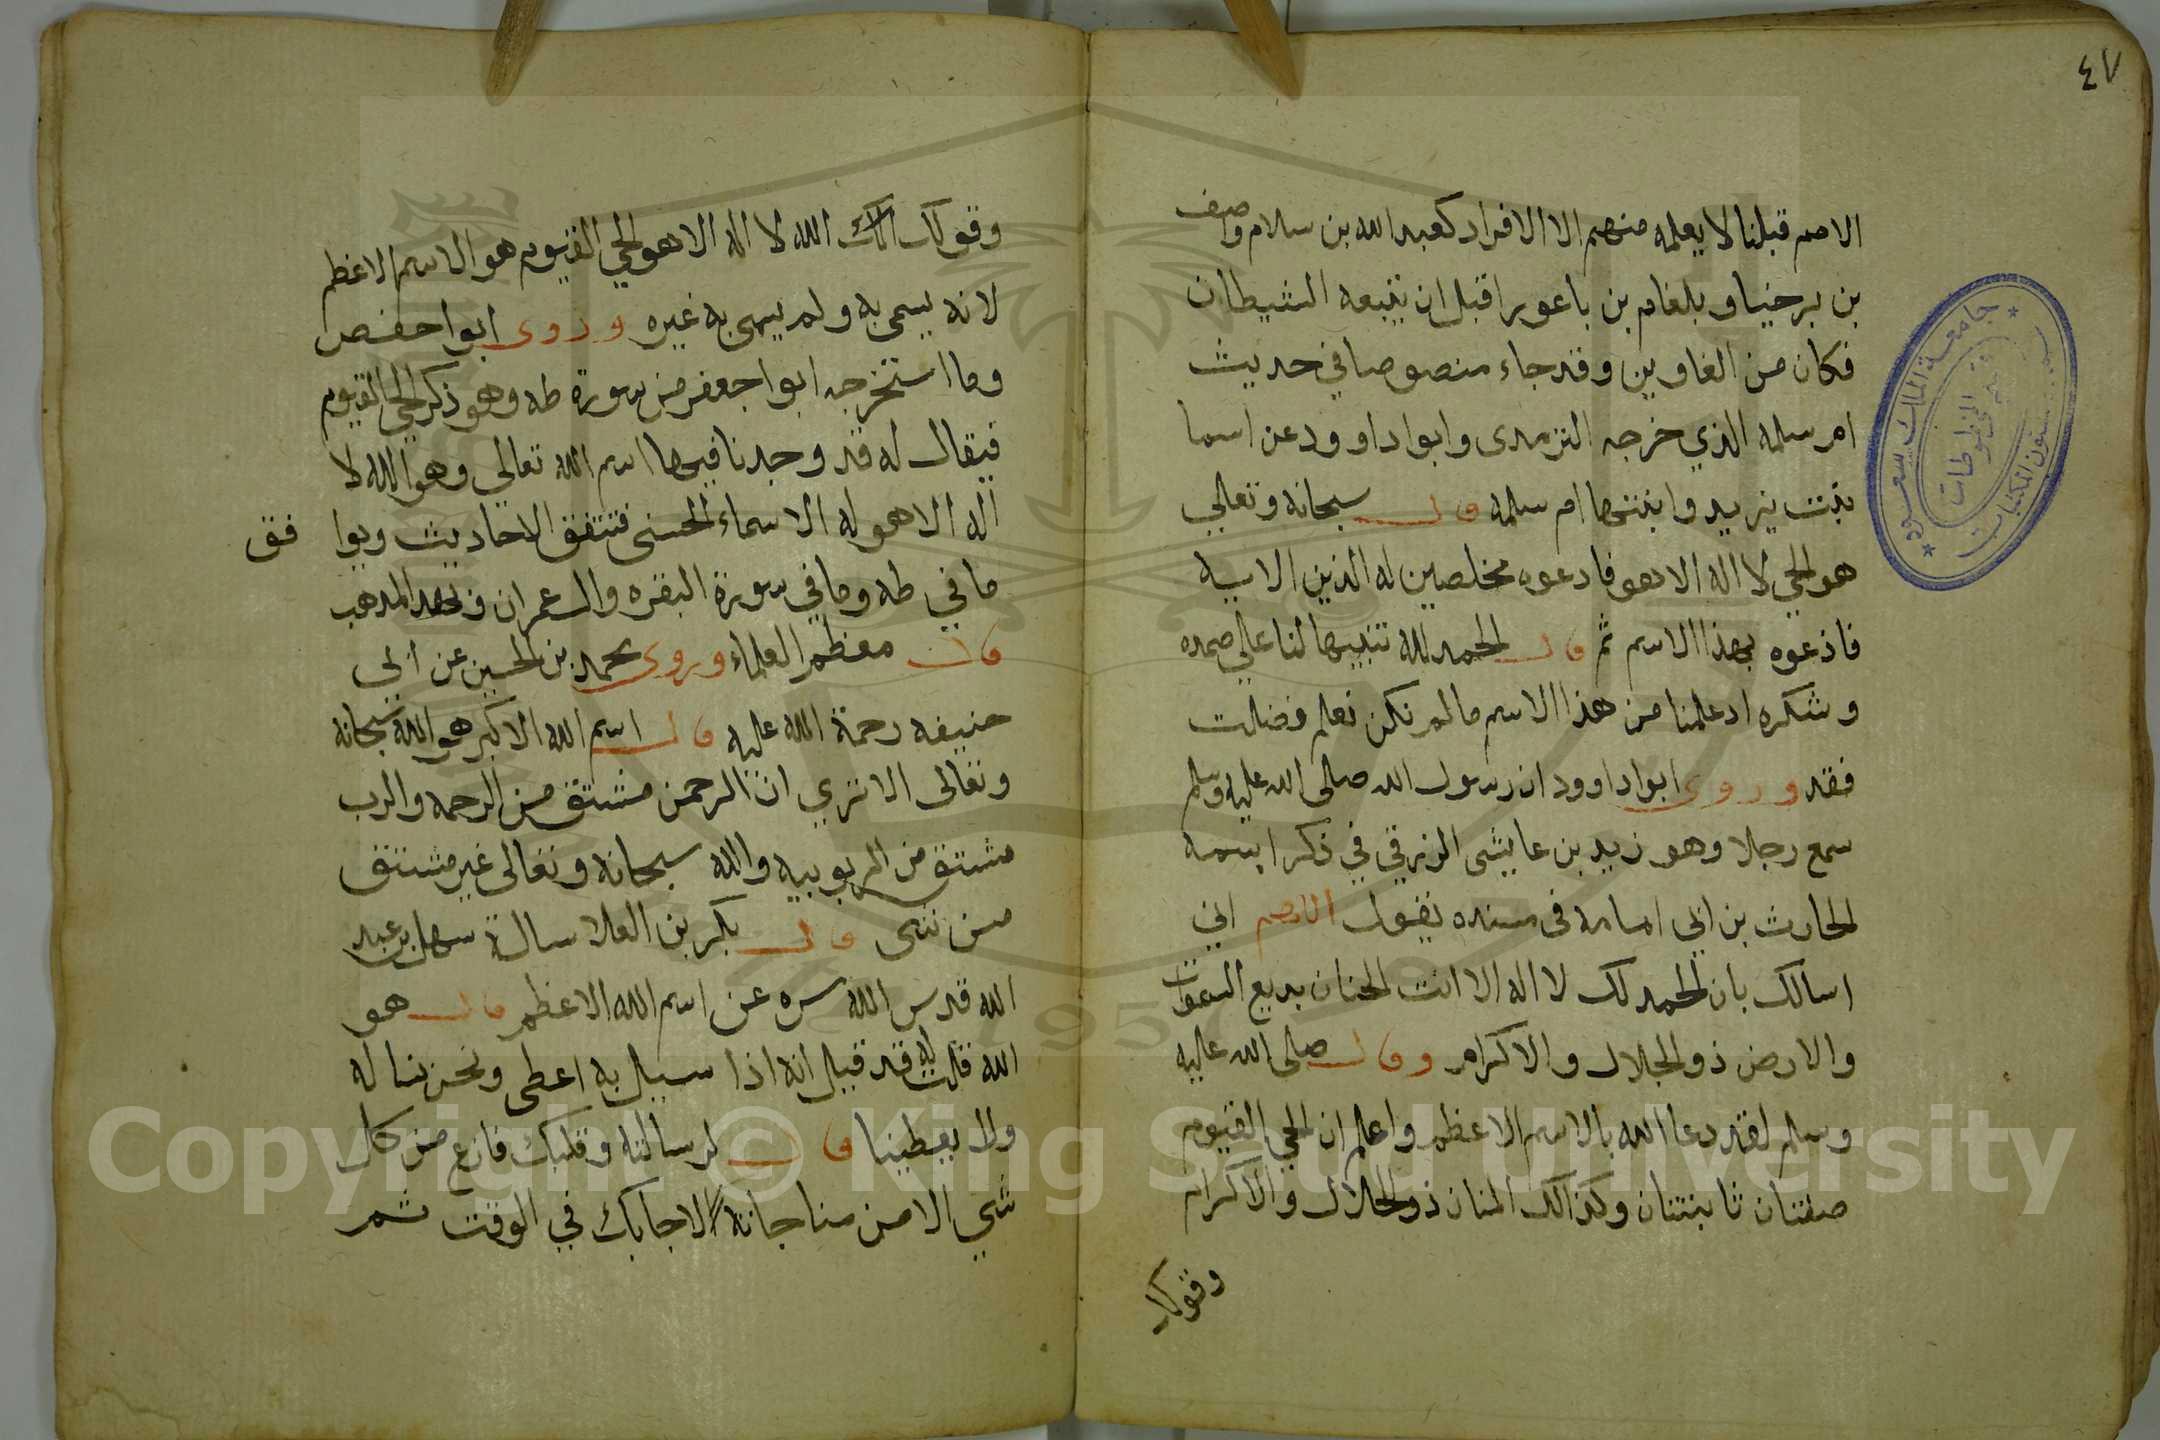 ٤٧
الامم قبلنا لا يعلمه منهم الا الافراد كعبد الله بن سلام واصف
بن برخيا و بلغام بن باعورا قبل ان يتبعه الشيطان
فكان من الغاوين وقد جاء منصوصا في حديث
ام سلمه الذي خرجه الترمدى وابوا داوود عن اسما
بنت يزيد وابنتها ام سلمه قال سبحانه وتعالي
هو الحي لا اله الا هو فادعوه مخلصين له الذين الايه
فاذعوه بهذا الاسم ثم قال الحمد لله تنبيها لنا علي حمده
وشكره اد علمنا من هذا الاسم ما لم نكن نعلم فضلت
فقد وروى ابوا داوود ان رسول الله صلى الله عليه وسلم
سمع رجلا وهو زيد بن عايشى الزرقي في ذكر اسمه
الحارث بن ابي امامة فى مسنده يقول اللهم اني
اسالك بان الحمد لك لا اله الا انت الحنان بديع السموات
والارض ذو الجلال والاكرام وقال صلى الله عليه
وسلم لقد دعا الله بالاسم الاعظم واعلم ان الحي القيوم
صفتان ثابتتان وكذالك المنان ذو الجلال والاكرام
وقولك
وقولك الله لا اله الا هو الحي القيوم هو الاسم الاعظم
لانه يسمى به ولم يسمى به غيره وروى ابوا حفص
وما استخرجه ابوا جعفر من سورة طه وهو ذكر الحي القيوم
فيقال له قد وجدنا فيها اسم الله تعالي وهو الله لا
اله الا هو له الاسماء الحسنى فتتفق الاحاديث ويوا فق
ما في طه وما في سورة البقره وال عمران وبهد المدهب
قال معظم العلماء وروى محمد بن الحسين عن ابي
حنيفه رحمة الله عليه قال اسم الله الاكبر هو الله سبحانه
وتعالى الا تري ان الرحمن مشتق من الرحمه والرب
مشتق من الربوبيه والله سبحانه وتعالى غير مشتق
من شى قال بكر بن العلا سالة سهل بن عبد
الله قدس الله سره عن اسم الله الاعظم قال هو
الله قلت له قد قيل انه اذا سيل به اعطى ونحن نساله
ولا يعطينا قال لو سالته وقلبك فارع من كل
شي الا من مناجاته الاجابك في الوقت ثم
جامعة الملك سعود